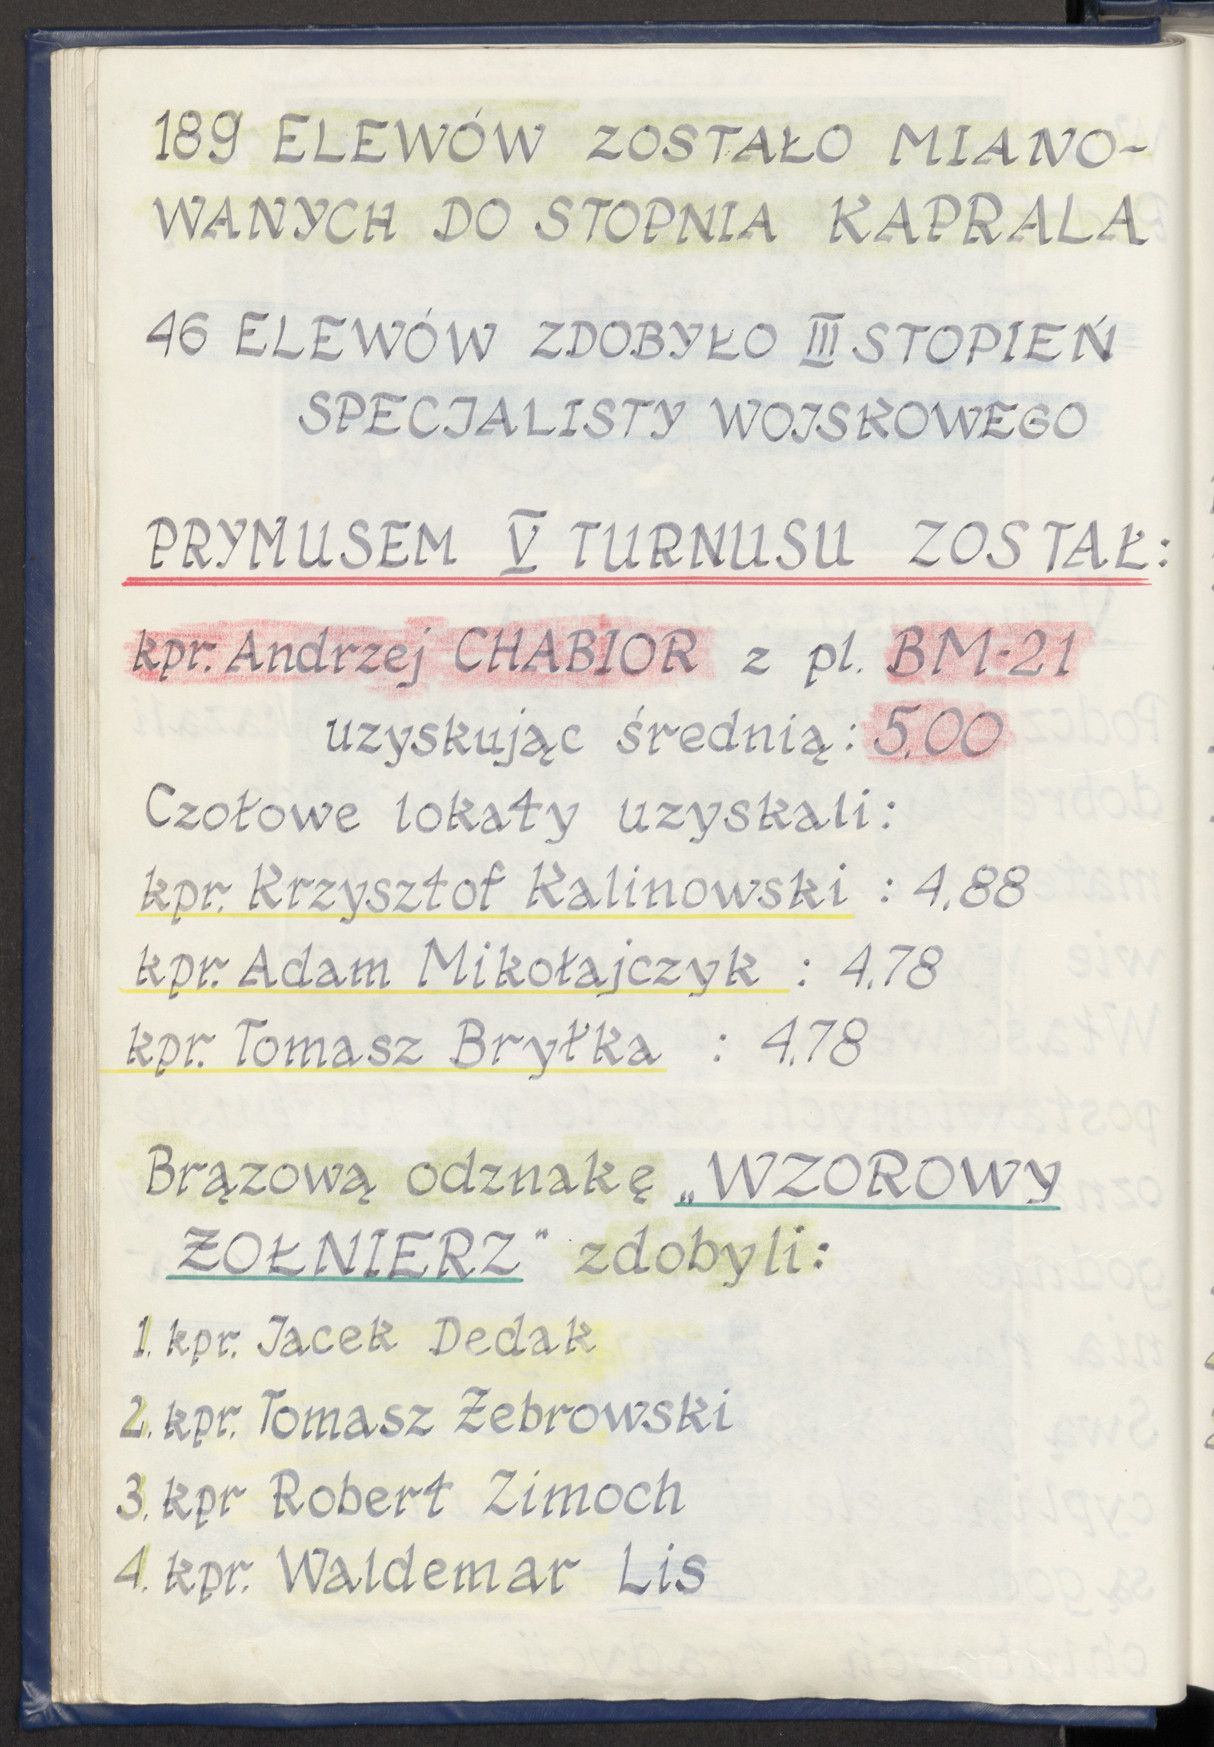 189 ELEWÓW ZOSTAŁO MIANO-
WANYCH DO STOPNIA KAPRALA
46 ELEWÓW ZDOBYŁO III STOPIEŃ
SPECJALISTY WOJSKOWEGO
PRYMUSEM V TURNUSU ZOSTAŁ:
kpr. Andrzej CHABIOR z pl. BM-21
uzyskując średnią: 5,00
Czołowe lokaty uzyskali:
kpr. Krzysztof Kalinowski : 4,88
kpr. Adam Mikołajczyk : 4,78
kpr. Tomasz Bryłka : 4,78
Brązową odznakę „WZOROWY
ŻOŁNIERZ" zdobyli:
1. kpr. Jacek Dedak
2. kpr. Tomasz Żebrowski
3. kpr Robert Zimoch
4. kpr. Waldemar Lis